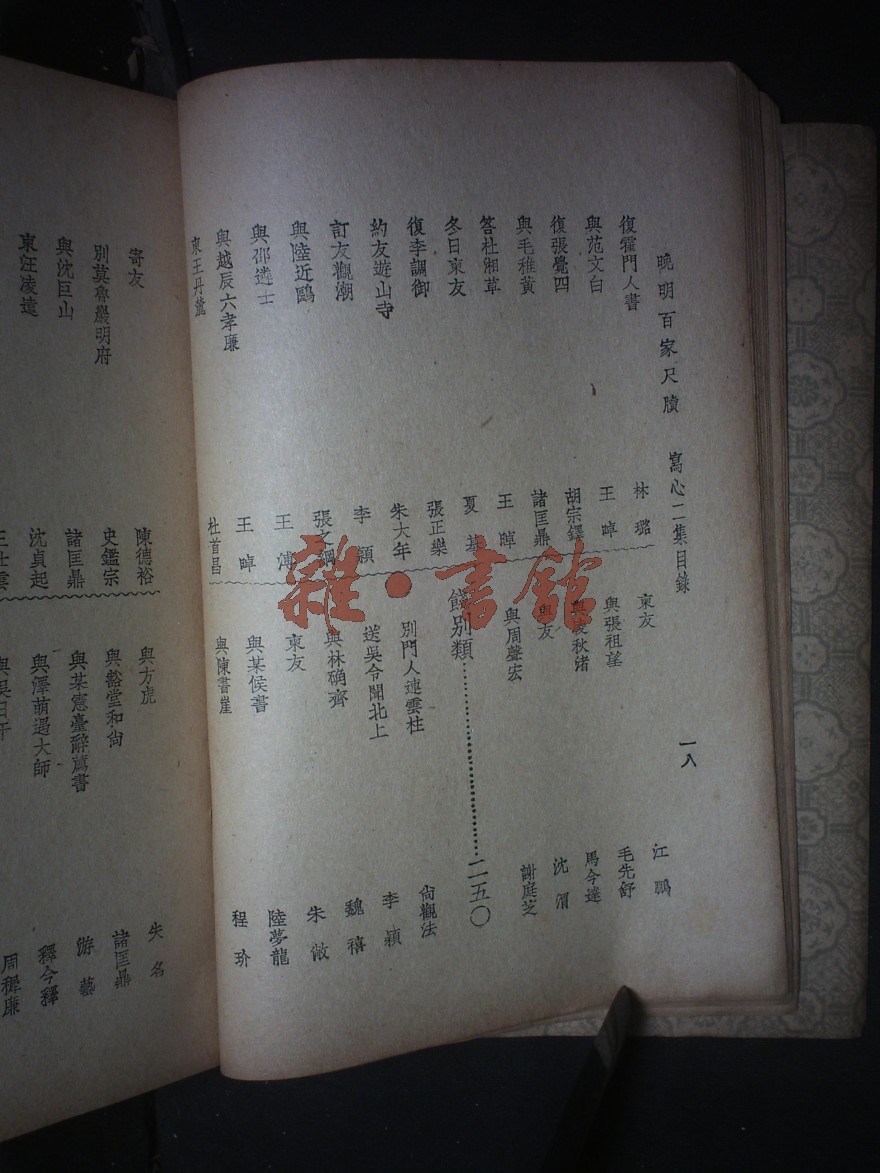 晚明百家尺牘 寫心二集目錄 一八
復霍門人書 林璐
與范文白 王晫
復張覺四 胡宗鐸
與毛稚黃 諸匡鼎
答杜湘草 王晫
冬日柬友 夏基
復李調御 張正樂
約友遊山寺 朱大年
訂友觀潮 李穎
與陸近鷗 張之綱
與邵遴士 王溥
與越辰六孝廉 王晫
柬王丹麓 杜首昌
柬友 江鵬
與張祖望 毛先舒
與凌秋渚 馬今遴
與友 沈渭
與周聲宏 謝庭芝
餞別類 二五〇
別門人連雲柱 尙觀法
送吳令聞北上 李穎
與林确齊 魏禧
柬友 朱倣
與某侯書 陸夢龍
與陳書崖 程玠
寄友 陳德裕
別莫魯巖明府 史鑑宗
與沈巨山 諸匡鼎
柬汪凌遠 沈貞起
王仕雲
與方虎 失名
與豁堂和尙 諸匡鼎
與某憲臺辭薦書 游藝
與澤萌遇大師 釋今釋
周穉廉
雜·書館